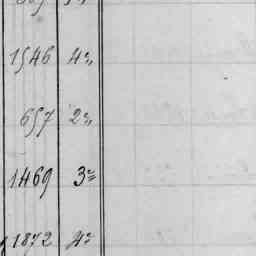 1546 4"
657 2"
1469 3"
1872 4"